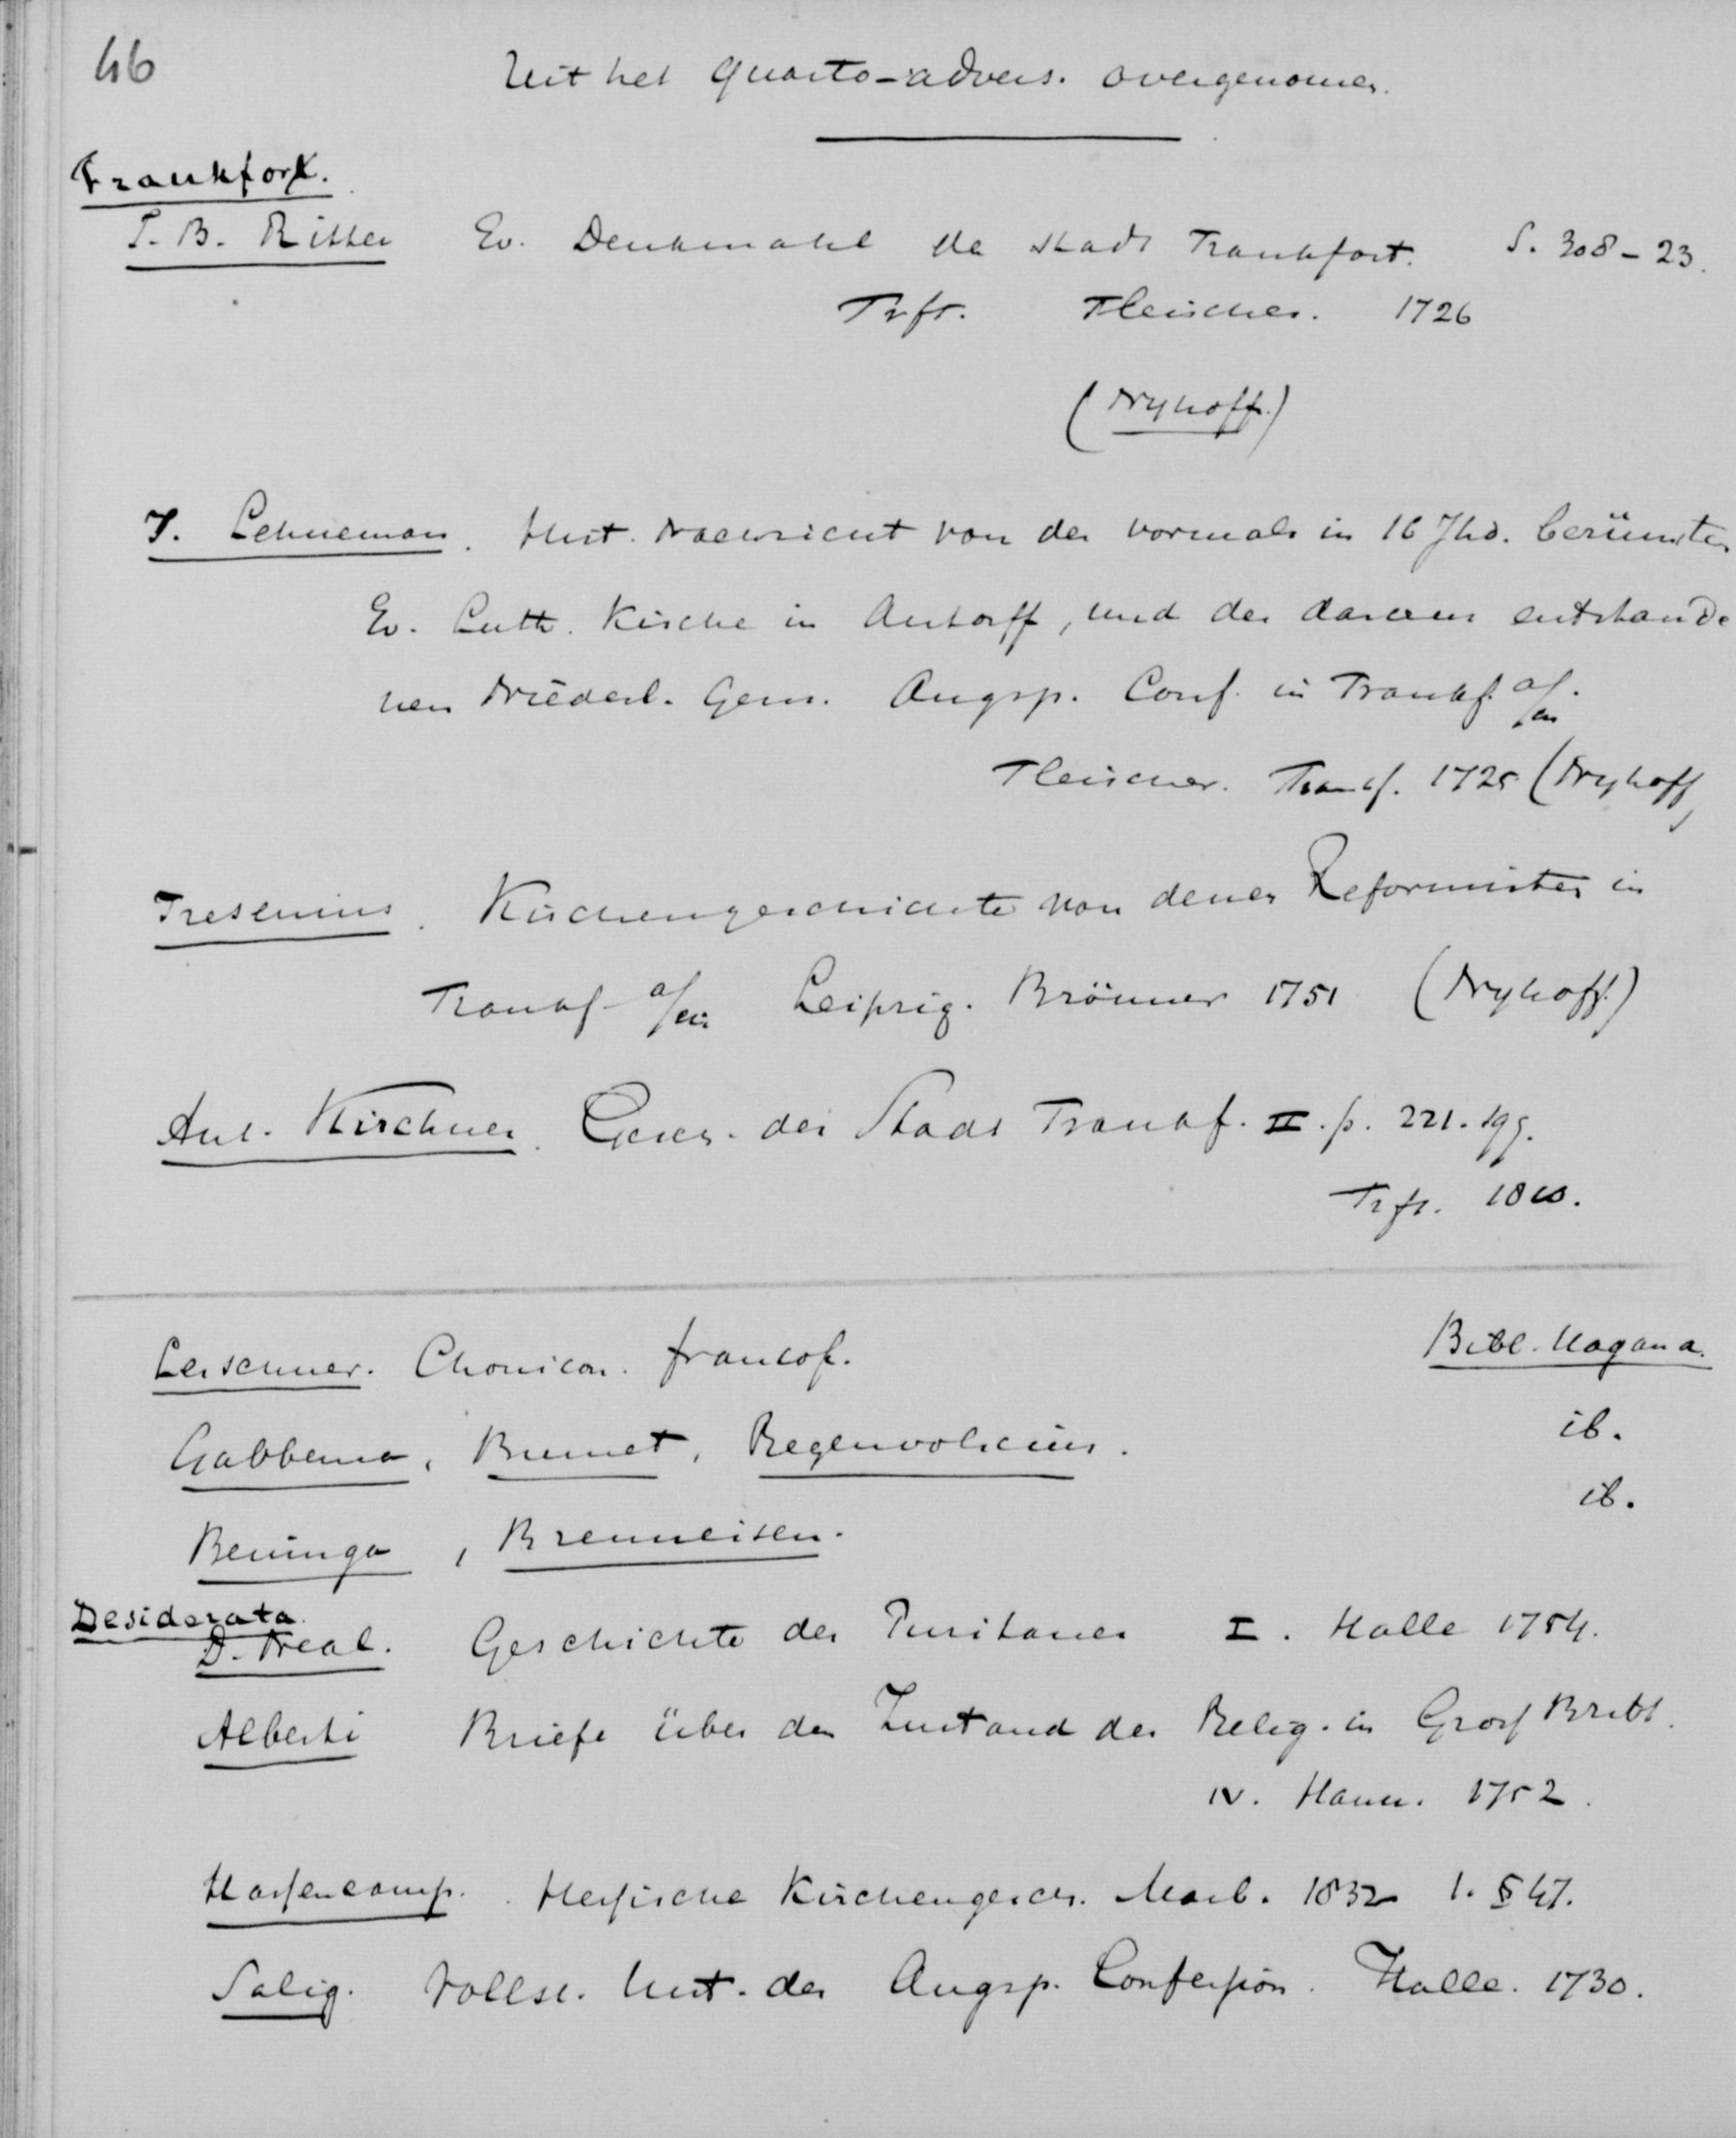 46
Uit het quarto-advers. overgenomen.
Frankfort.
J. B. Ritter Ev. Denkmahl der Stadt Frankfort. S. 308-23.
Frft. Fleischer. 1726
(Nyhoff.)
J. Lehneman. Hist. Nachricht von der vormals in 16 Jhd. berümten
Ev. Luth. Kirche in Antorff, und der daraus entstande
nen Niederl. Gem. Augsp. Conf. in Frankf. a/m.
Fleischer. Frankf. 1725 (Nyhoff)
Fresenius. Kirchengeschichte von denen Reformirten in
Frankf. a/m Leipzig. Brönner 1751 (Nyhoff.)
Ant. Kirchner. Gesch. der Stadt Frankf. II. p. 221. sqq.
Frft. 1810.
Lerschner. Chronicon. francof. Bibl. Hagana.
Gabbema, Burnet, Regenvolscius. ib.
Beninga, Brenneisen. ib.
Desiderata.
D. Neal. Geschichte der Puritaner I. Halle 1754.
Alberti Briefe über den Zustand der Relig. in Gross Britt.
IV. Hann. 1752.
Hassencamp. Hessische Kirchengesch. Marb. 1832 1. § 47.
Salig. Vollst. Hist. der Augsp. Confession. Halle. 1730.